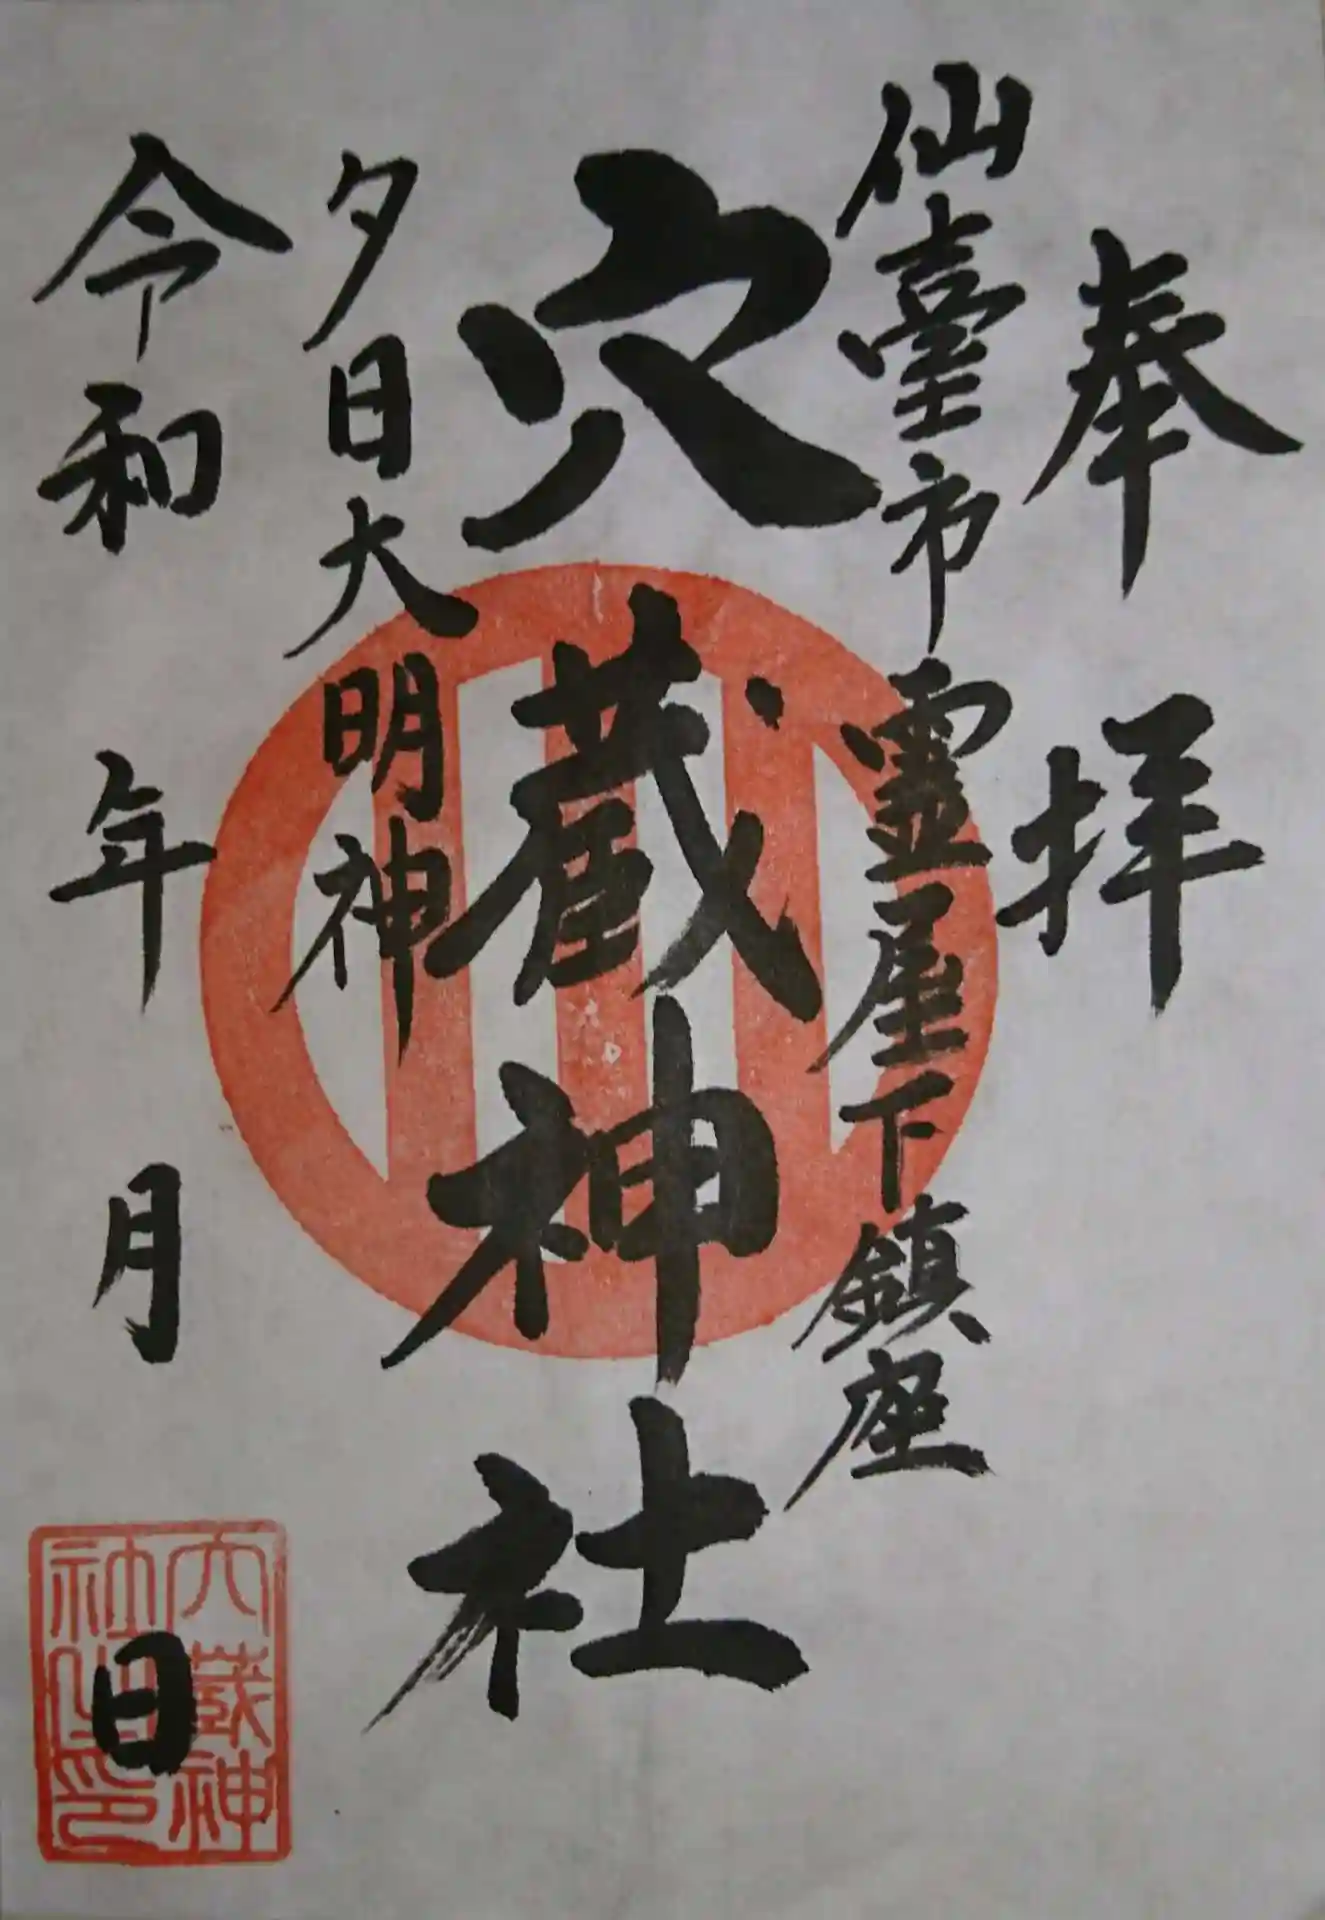 奉拝
仙臺市霊屋下鎮座
穴蔵神社
夕日大明神
令和 年 月 日
穴蔵神
社之印